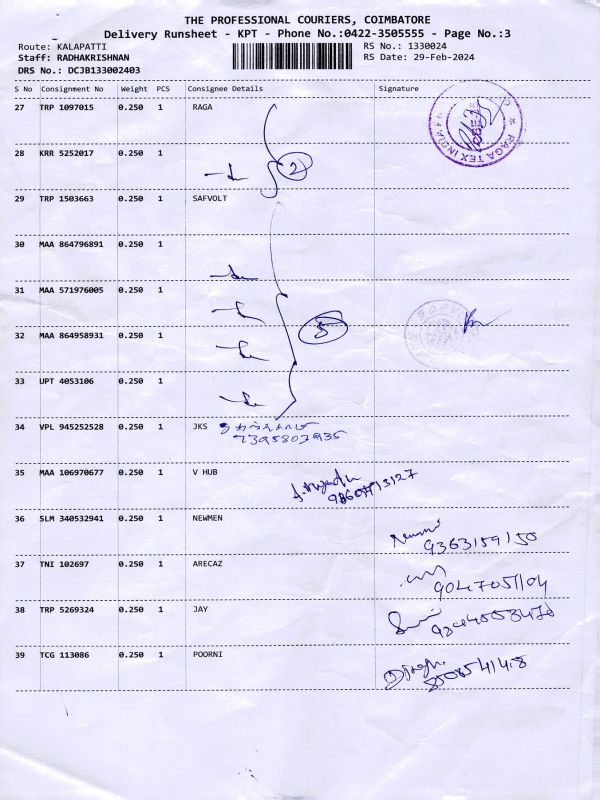 THE PROFESSIONAL COURIERS, COIMBATORE
Delivery Runsheet - KPT - Phone No.:0422-3505555 - Page No.:3
Route: KALAPATTI RS No.: 1330024
Staff: RADHAKRISHNAN RS Date: 29-Feb-2024
DRS No.: DCJB133002403
S No Consignment No Weight PCS Consignee Details Signature
27 TRP 1097015 0.250 1 RAGA
RAGA TEX INDIA
28 KRR 5252017 0.250 1
2
29 TRP 1503663 0.250 1 SAFVOLT
30 MAA 864796891 0.250 1
31 MAA 571976005 0.250 1
5
32 MAA 864958931 0.250 1
33 UPT 4053106 0.250 1
34 VPL 945252528 0.250 1 JKS
7395803935
35 MAA 106970677 0.250 1 V HUB
36 SLM 340532941 0.250 1 NEWMEN
9363159150
37 TNI 102697 0.250 1 ARECAZ
9047051104
38 TRP 5269324 0.250 1 JAY
39 TCG 113086 0.250 1 POORNI
8508541418